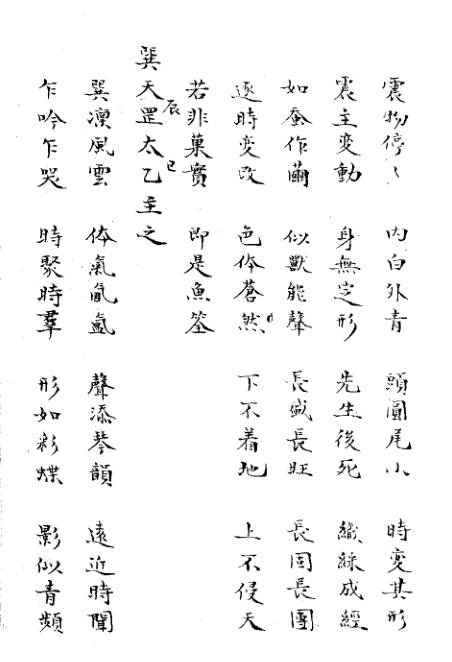 震物停停 內白外青 頭圓尾小 時變其形
震主變動 身無定形 先生後死 織綵成經
如蚕作繭 似獸能聲 長盛長旺 長固長團
逐時变改 色体蒼然 下不着地 上不侵天
若非菓實 即是魚筌
巽天罡太乙主之
辰 巳
巽凜風雲 体氣氤氳 聲添琴韻 遠近時聞
乍吟乍哭 時聚時羣 形如彩蝶 影似青頻